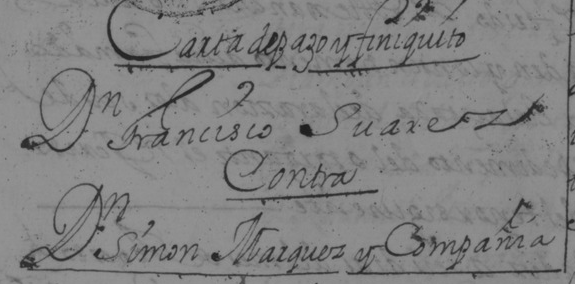 Carta de pago y finiquito
Dn Francisco Suarez
Contra
Dn Simon Marquez y Compañia